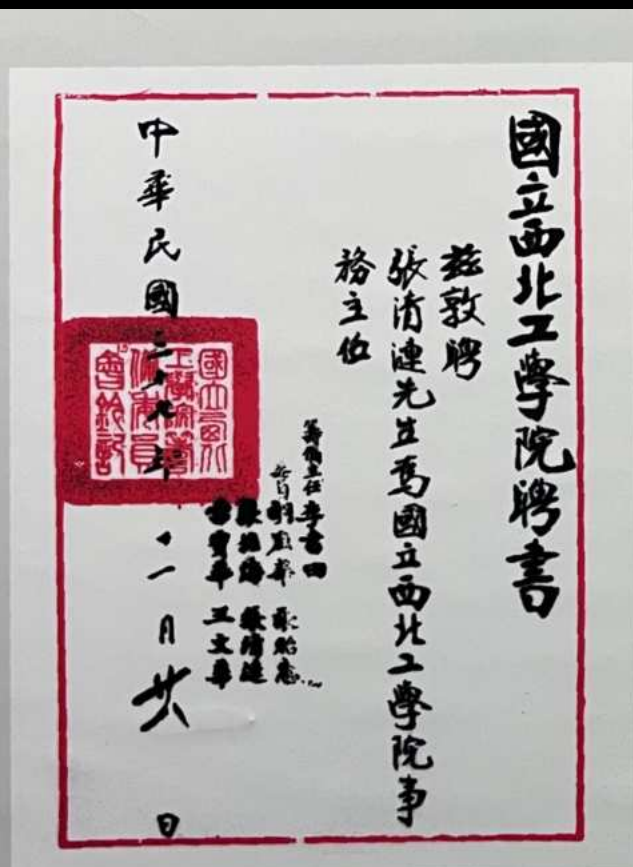 國立西北工學院聘書
茲敦聘
張清漣先生爲國立西北工學院事
務主任
籌備主任李書田
委員胡庶華 張貽惠
張北海 張清漣
雷寶華 王文華
中華民國二十七年十一月廿八日
國立西北工學院籌備委員會鈐記